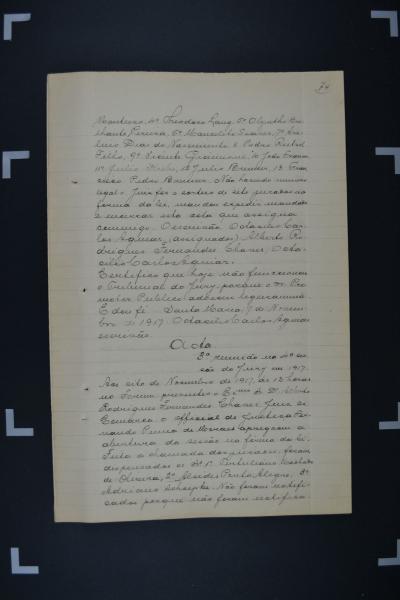 74
Monteiro, 4º Theodoro Lang, 5º Olyntho
Pereira, 6º Manoelito Soares, 7º
Dias do Nascimento, 8º Pedro
Filho, 9º Vicente 10º João
11º Julio 12º Julio 13º Fran
cisco Pedro Não havendo numero
legal o Juiz fez o sorteio de sete jurados na
forma da lei, mandou expedir mandado
e marcar esta acta que assigna
commigo. O escrivão Octacilio Car
los Aguiar, (assignados) Alberto Ro
drigues Fernandes Chaves, Octa
cilio Carlos Aguiar.
Certifico que hoje não funccionou
o Tribunal do Jury, porque o Dr. Pro
motor Publico adoeceu
E dou fé. Santa Maria, 7 de Novem
bro de 1917. Octacilio Carlos Aguiar
escrivão.
Acta
3ª reunião na 4ª ses
são do Jury em 1917.
Aos oito de Novembro de 1917, ás 12 horas
no Forum, presentes o Exmo Sr. Dr. Alberto
Rodrigues Fernandes Chaves, Juiz de
Comarca, o official de Justiça Fer
nando Penna de Moraes apregoou a
abertura da sessão na forma da lei.
Feita a chamada dos jurados, foram
dispensados os Srs 1º Tertuliano
de Oliveira, 2º Alcides Porto Alegre, 3º
Adriano Não foram notifi
cados porque não foram